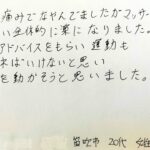 痛みでなやんでましたがマッサ
い全体的に楽になりました。
アドバイスをもらい運動も
ねばいけないと思い
を動かそうと思いました。
笛吹市 20代 女性